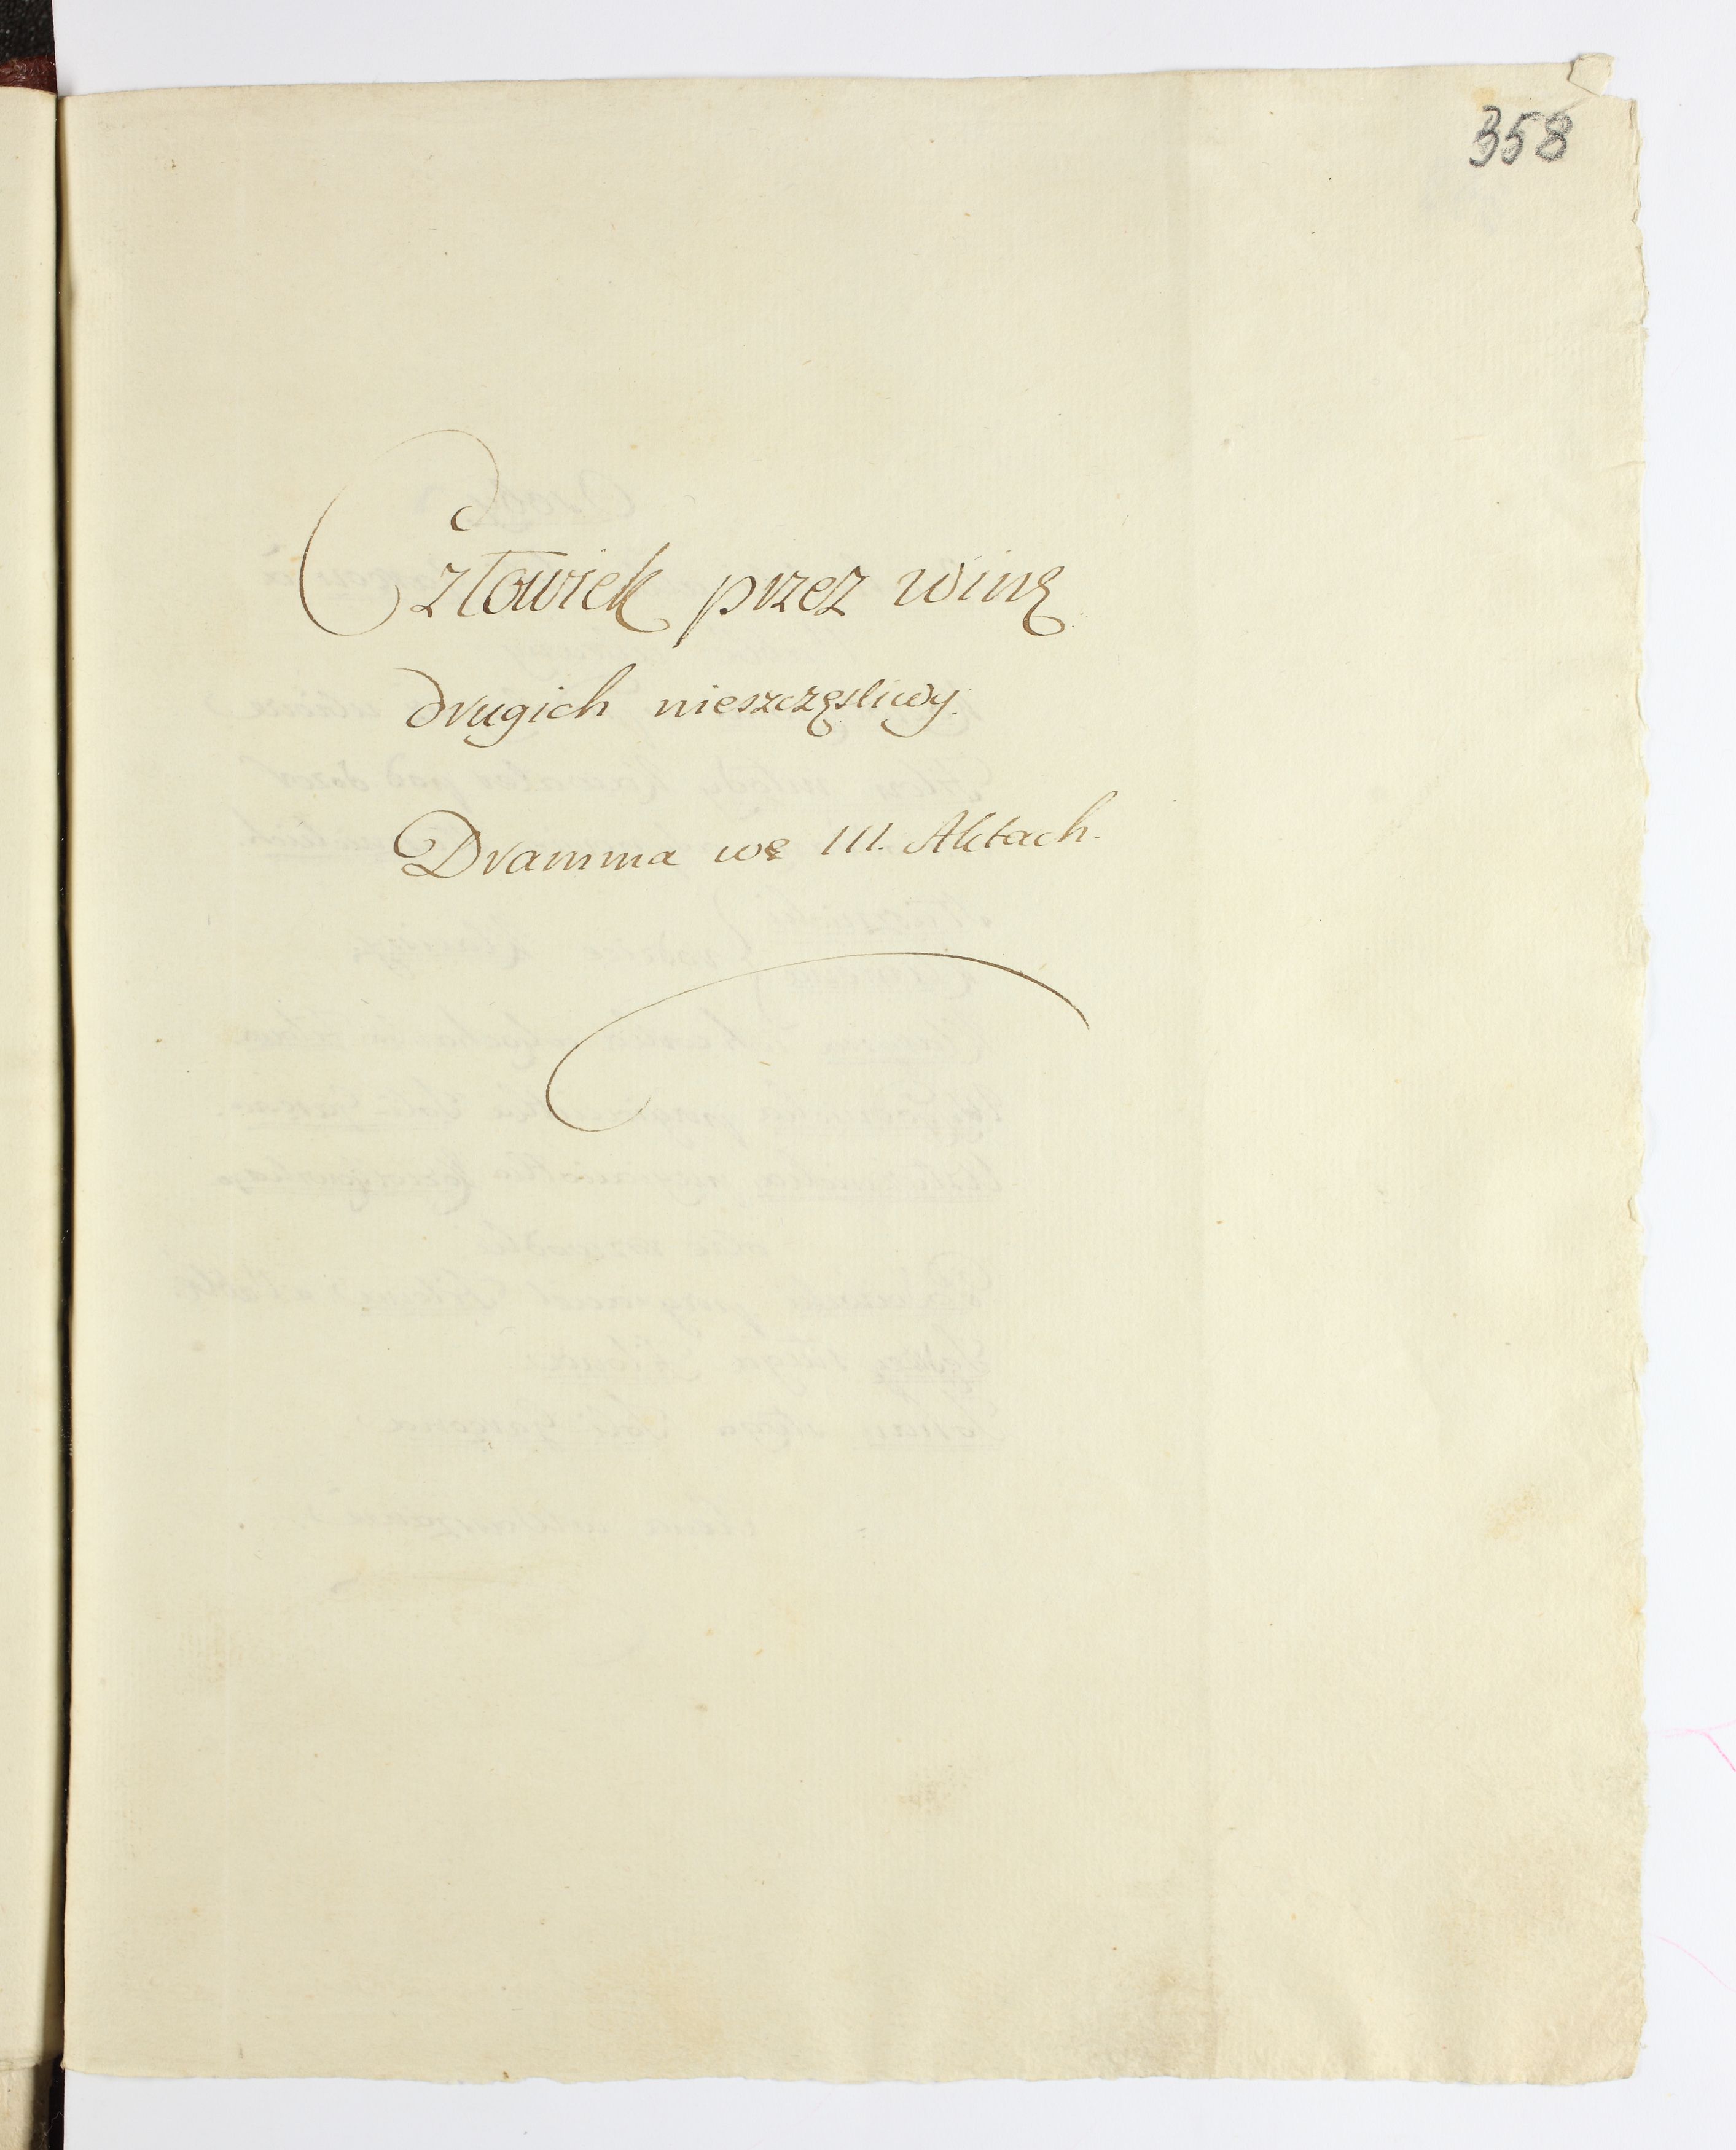 358
Człowiek przez winę
drugich nieszczęsliwy.
Dramma we III. Aktach.